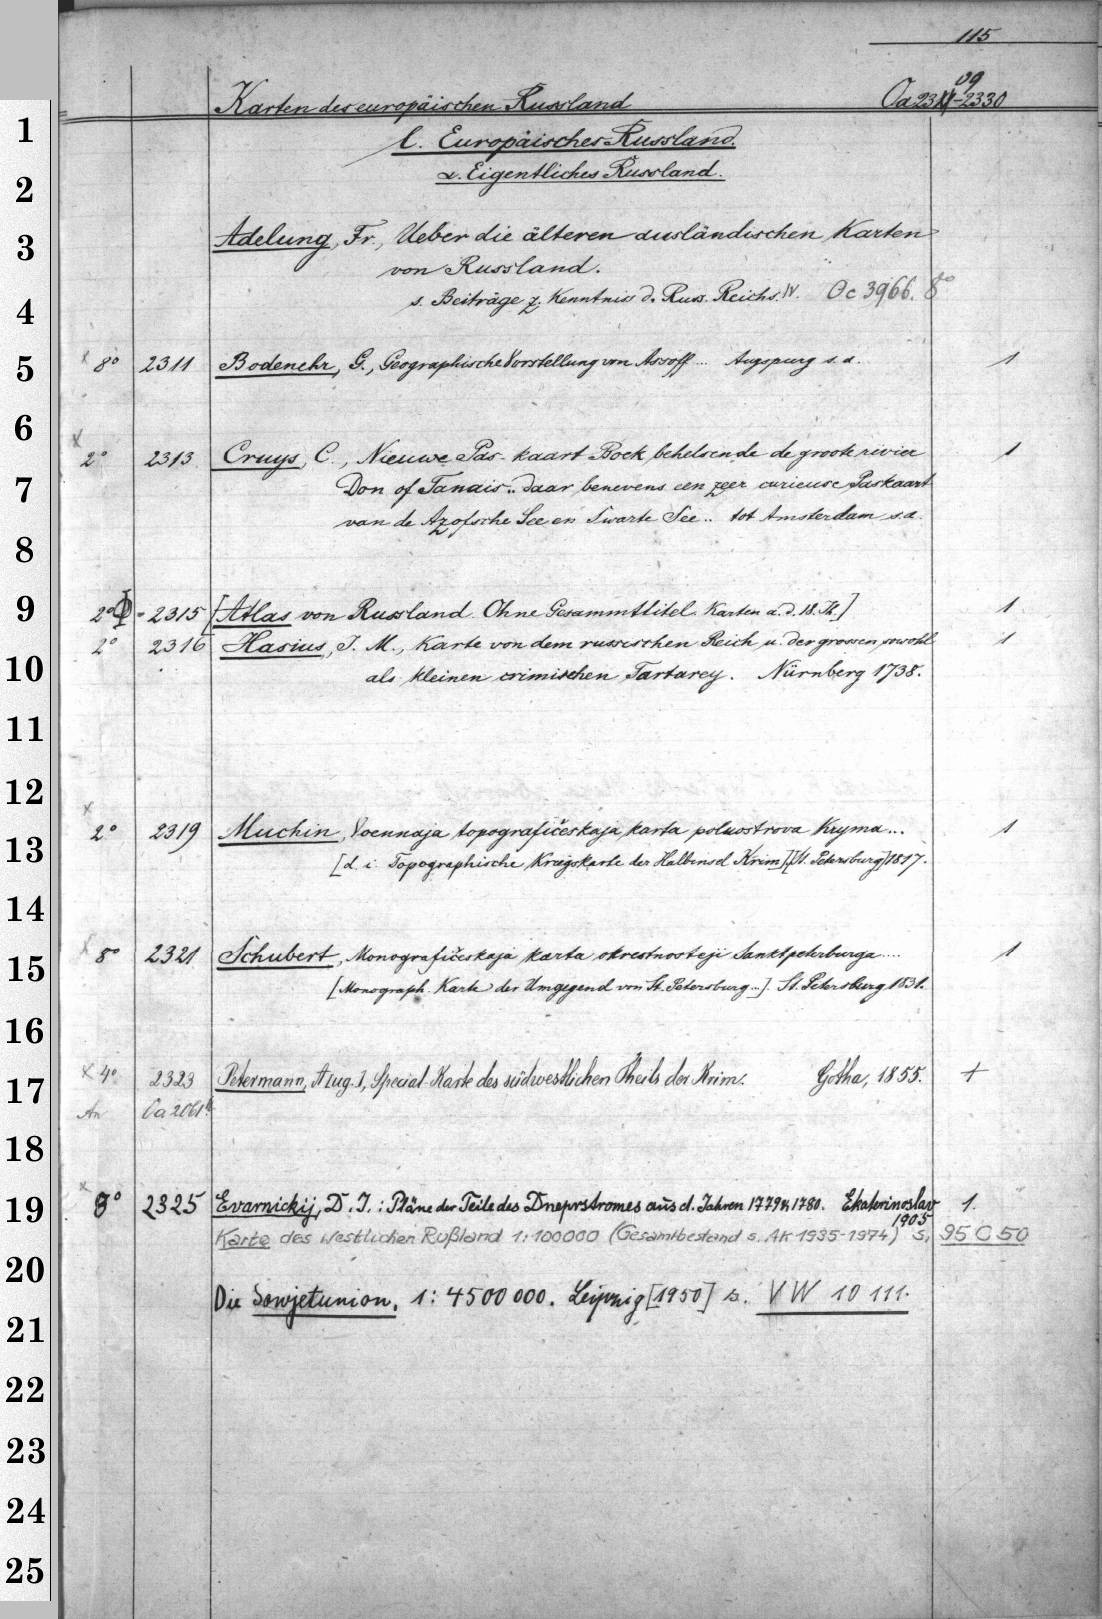 115
09
Karten des europäischen Russland Oa 2311-2330
1
l. Europäisches Russland.
2
α. Eigentliches Russland.
3 Adelung, Fr., Ueber die älteren ausländischen Karten
von Russland.
4 s. Beiträge z. Kenntniss d. Russ. Reichs. IV. Oc 3966. 8°
5 x 8° 2311 Bodenehr, G., Geographische Vorstellung von Assoff... Augspurg s. a. 1
6
x 2° 2313 Cruys, C., Nieuwe Pas-kaart Boek behelsende de groote rivier 1
7 Don of Tanais.. daar benevens een zeer curieuse Paskaart
van de Azofsche See en Swarte See.. tot Amsterdam s.a.
8
9 2° - 2315 [Atlas von Russland. Ohne Gesammttitel. Karten a. d. 18. Jh.] 1
2° 2316 Hasius, J. M., Karte von dem russischen Reich u. der grossen sowohl 1
10 als kleinen crimischen Tartarey. Nürnberg 1738.
11
12
x 2° 2319 Muchin, Voennaja topografičeskaja karta poluostrova Kryma... 1
13 [d. i. Topographische Kriegskarte der Halbinsel Krim][St. Petersburg] 1817.
14
x 8° 2321 Schubert, Monografičeskaja karta okrestnosteji Sanktpeterburga.... 1
15 [Monograph. Karte der Umgegend von St. Petersburg...]. St. Petersburg 1831.
16
17 x 4° 2323 Petermann, A[ug.], Special-Karte des südwestlichen Theils der Krim. Gotha, 1855. +
An Oa 2061
18
19 x 8° 2325 Evarnickij, D. I.: Pläne der Teile des Dneprstromes aus d. Jahren 1779 u. 1780. Ekaterinoslav 1.
1905
Karte des westlichen Rußland 1:100000 (Gesamtbestand s. AK 1935-1974) s. 95 C 50
20
Die Sowjetunion. 1: 4500 000. Leipzig [1950] s. VW 10 111.
21
22
23
24
25